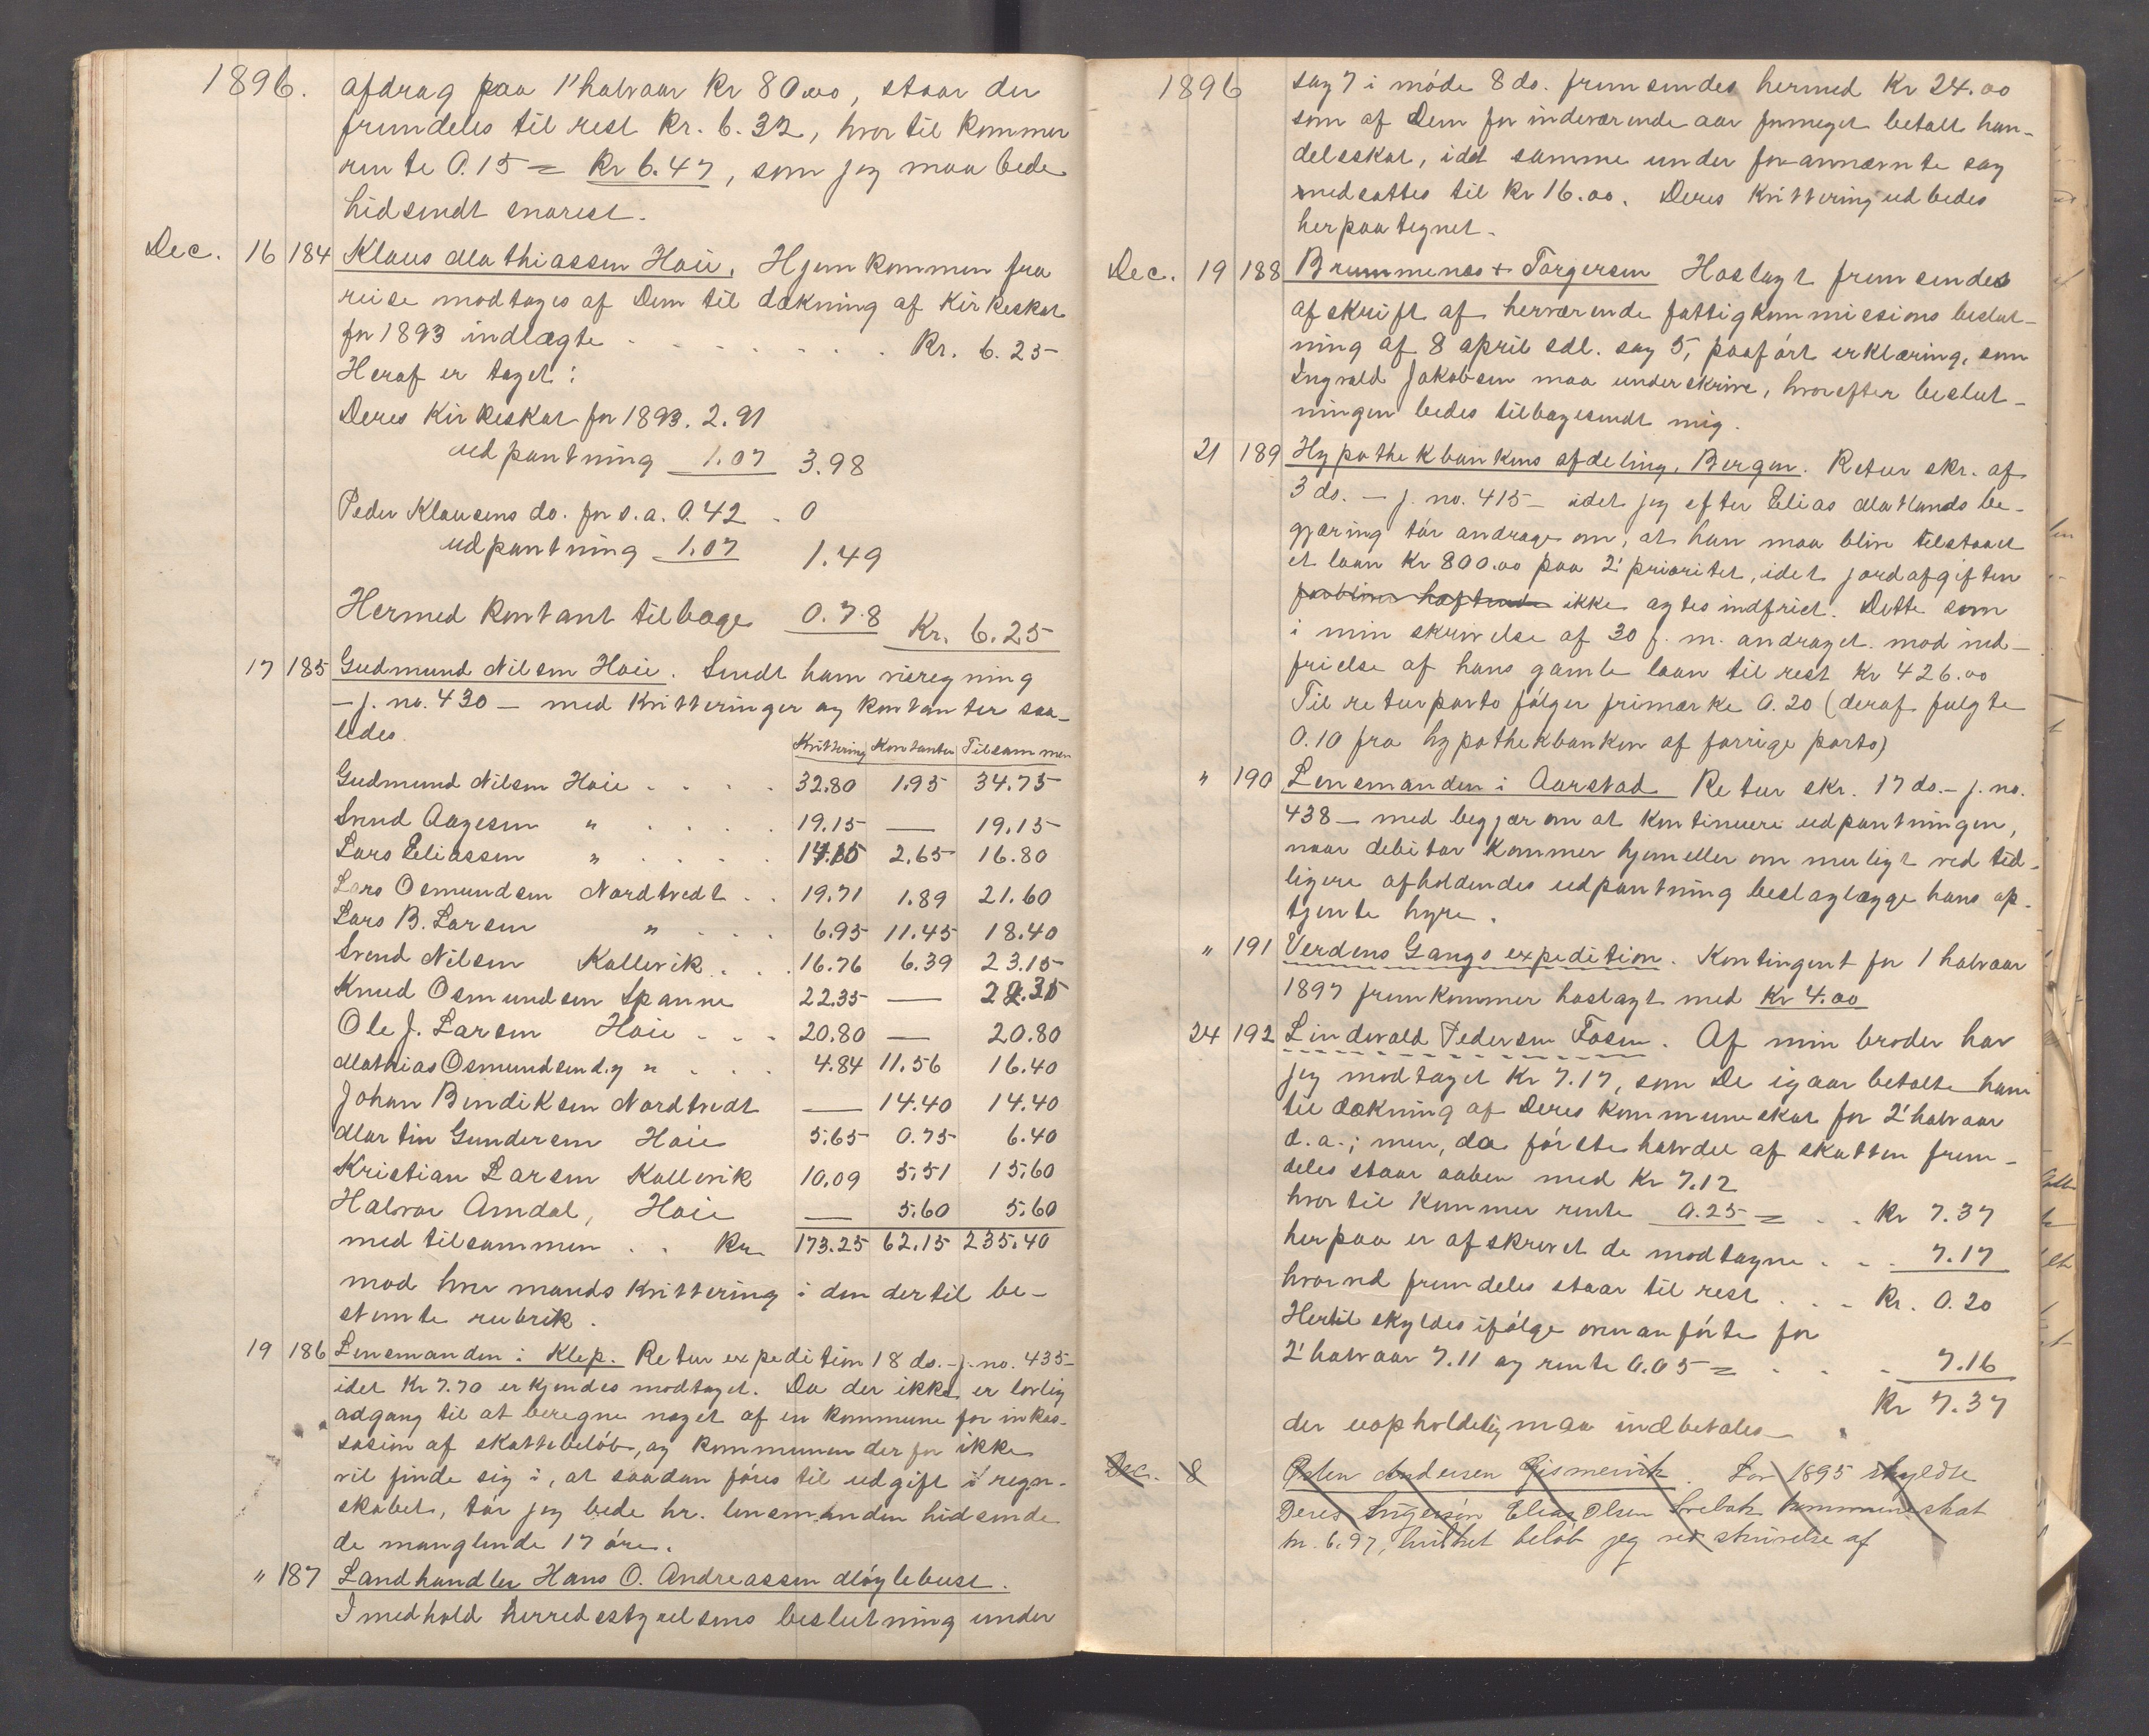 1896.
afdrag paa 1' halvaar Kr 80.00, staar der
fremdeles til rest Kr. 6.32, hvortil kommer
rente 0.15 = Kr 6.47, som jeg maa bede
hidsendt snarest.
Dec. 16 184 Klaus Mathiassen Høie. Hjemkommen fra
reise modtages af Dem til dækning af Kirkeskat
for 1893 indlagte . . . . . . . Kr. 6.25
Heraf er taget:
Deres Kirkeskat for 1893. 2.91
udpantning 1.07 3.98
Peder Klausens do. for s.a. 0.42 . 0
udpantning 1.07 1.49
Hermed kontant tilbage 0.78 Kr. 6.25
17 185 Gudmund Nilsen Høie. Sendt ham reisregning
- j. no. 430 - med kvitteringer og kontanter saa-
ledes.
Kvittering Kontanter Tilsammen
Gudmund Nilsen Høie . . . . 32.80 1.95 34.75
Svend Aagesen " . . . . 19.15 — 19.15
Lars Eliassen " . . . . 14.15 2.65 16.80
Lars Osmundsen Nordtvedt . . 19.71 1.89 21.60
Lars B. Larsen " . . . 6.95 11.45 18.40
Svend Nilsen Kallevik . . . 16.76 6.39 23.15
Knud Osmundsen Spanne 22.35 — 22.35
Ole J. Larsen Høie . . . 20.80 — 20.80
Mathias Osmundsen d.y " . . . 4.84 11.56 16.40
Johan Bendiksen Nordtvedt — 14.40 14.40
Martin Gundersen Høie 5.65 0.75 6.40
Kristian Larsen Kallevik 10.09 5.51 15.60
Halvor Amdal, Høie — 5.60 5.60
med tilsammen . . Kr. 173.25 62.15 235.40
mod hver mands kvittering i den dertil be-
stemte rubrik.
19 186 Lensmanden i Klep. Retur expedition 18 ds. - j. no. 435 -
idet Kr 7.70 erkjendes modtaget. Da der ikke er lovlig
adgang til at beregne noget af en kommune for inkas-
sasion af skattebeløb, og kommunen derfor ikke
vil finde sig i, at saadan føres til udgift i regn-
skabet, tør jeg bede hr. lensmanden hidsende
de manglende 17 øre.
" 187 Landhandler Hans O. Andreassen Møglebust.
I medhold herredsstyrelsens beslutning under
1896
sag 7 i møde 8 ds. fremsendes hermed Kr 24.00
som af Dem for indeværende aar formeget betalt han-
delsskat, idet samme under forannævnte sag
nedsattes til Kr 16.00. Deres kvittering udbedes
herpaategnet.
Dec. 19 188 Brummenæs & Torgersen Hoslagt fremsendes
afskrift af herværende fattigkommissions beslut-
ning af 8 april sdl. sag 5, paaført erklæring, som
Ingvald Jakobsen maa underskrive, hvorefter beslut-
ningen bedes tilbagesendt mig.
21 189 Hypothekbankens afdeling, Bergen. Retur skr. af
3 ds. - j. no. 415 - idet jeg efter Elias Matlands be-
gjæring tør andrage om, at han maa blive tilstaaet
et laan Kr 800.00 paa 2' prioritet, idet jordafgiften
forbliver heftende ikke agtes indfriet. Dette som
i min skrivelse af 30 f. m. andraget mod ind-
frielse af hans gamle laan til rest Kr 426.00
Til returporto følger frimærke 0.20 (deraf fulgte
0.10 fra hypothekbanken af forrige porto)
" 190 Lensmanden i Aarstad Retur skr. 17 ds. - j. no.
438 - med begjær om at kontinuere udpantningen,
naar debitor kommer hjem eller om muligt ved tid-
ligere afholdendes udpantning beslaglægge hans op-
tjente hyre.
" 191 Verdens Gangs expedition. Kontingent for 1 halvaar
1897 fremkommer hoslagt med Kr 4.00
24 192 Lindevald Pedersen Fosen. Af min broder har
jeg modtaget Kr 7.17, som De igaar betalte ham
til dækning af Deres kommuneskat for 2' halvaar
d.a.; men, da første halvdel af skatten frem-
deles staar aaben med Kr 7.12
hvortil kommer rente 0.25 = . . Kr 7.37
herpaa er afskrevet de modtagne . . . 7.17
hvorved fremdeles staar til rest . . . Kr. 0.20
Hertil skyldes ifølge ovenanførte for
2' halvaar 7.11 og rente 0.05 = . . . 7.16
Kr 7.37
der uopholdelig maa indbetales.
Dec. 8 Østen Andersen Gismervik. For 1895 skyldte
Deres Svigersøn Elias Olsen Srebak kommuneskat
kr. 6.97, hvilket beløb jeg ved skrivelse af